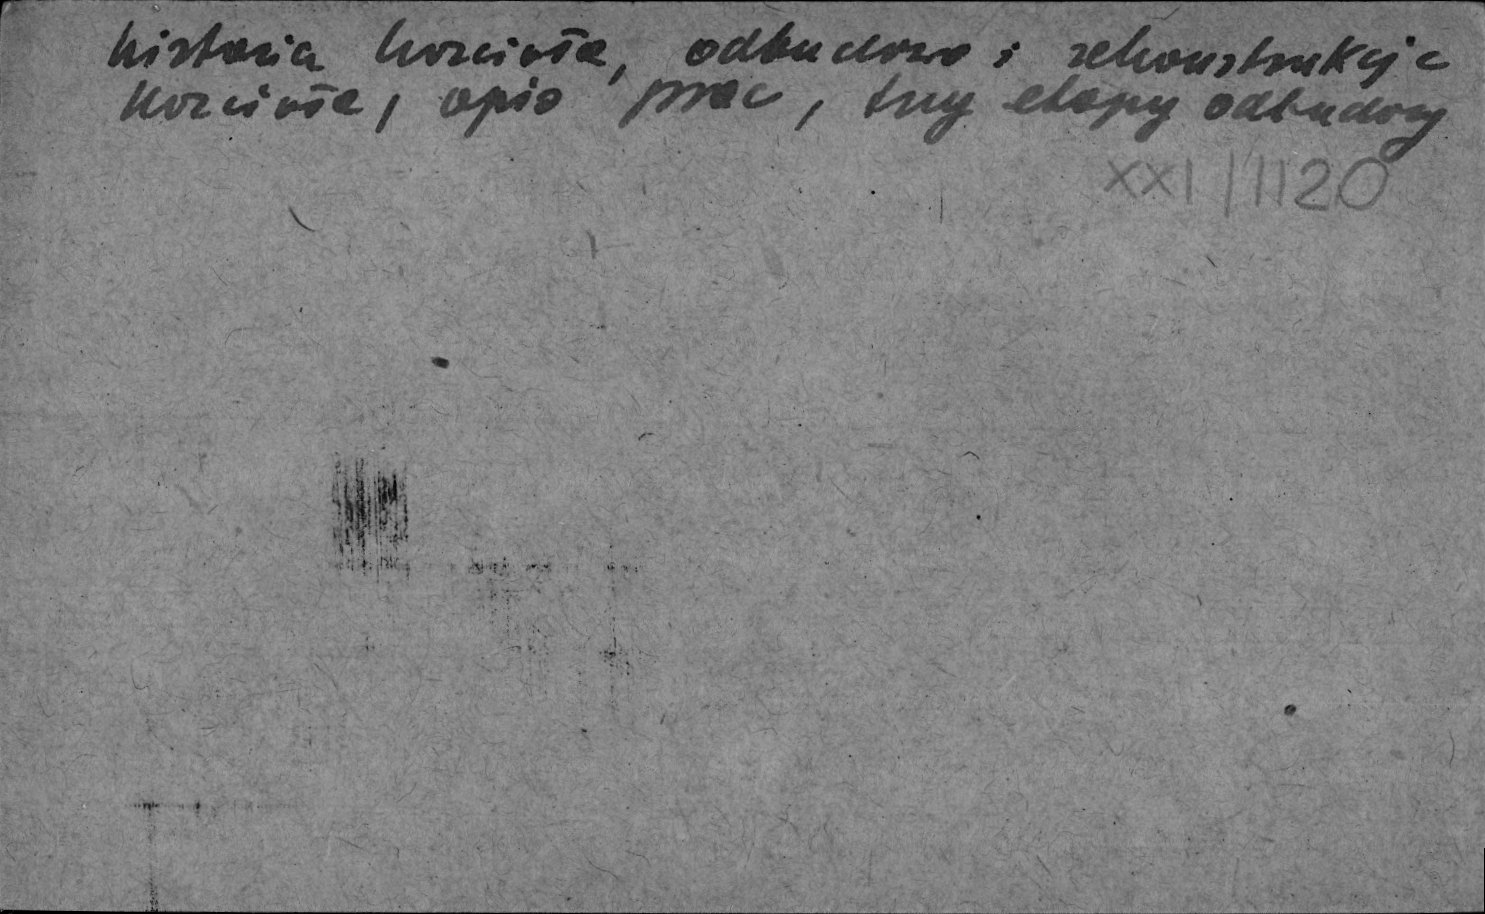 historia kościoła, odbudowa i rekonstrukcja
kościoła, opis prac, trzy etapy odbudowy
XXI/1120